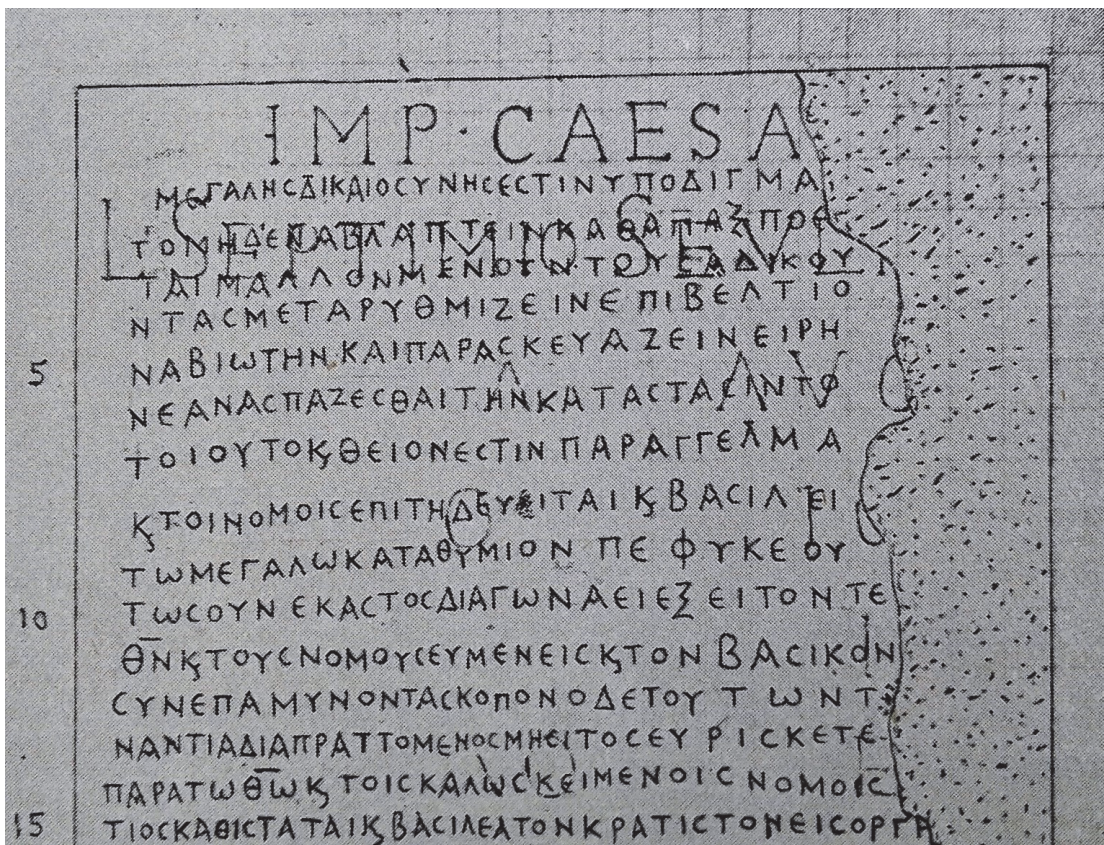 IMP·CAESA
ΜΕΓΑΛΗCΔΙΚΑΙΟCΥΝΗCΕCΤΙΝΥΠΟΔΙΓΜΑ
L SEPTIMIO SEV
ΤΟΜΗΔΕΝΑΒΛΑΠΤΕΙΝΚΑΘΑΠΑΞΠΟΕ
ΤΑΙΜΑΛΛΟΝΜΕΝΟΥΝΤΟΥCΑΔΙΚΟΥ
ΝΤΑCΜΕΤΑΡΥΘΜΙΖΕΙΝΕΠΙΒΕΛΤΙΟ
5 ΝΑΒΙωΤΗΝΚΑΙΠΑΡΑCΚΕΥΑΖΕΙΝΕΙΡΗ
ΝΕΑΝΑCΠΑΖΕCΘΑΙΤΗΝΚΑΤΑCΤΑCΙΝΤΟ
ΤΟΙΟΥΤΟϗΘΕΙΟΝΕCΤΙΝΠΑΡΑΓΓΕΛΜΑ
ϗΤΟΙΝΟΜΟΙCΕΠΙΤΗΔΕΥΕΙΤΑΙϗΒΑCΙΛΕΙ
ΤωΜΕΓΑΛωΚΑΤΑΘΥΜΙΟΝΠΕΦΥΚΕΟΥ
10 ΤωCΟΥΝΕΚΑCΤΟCΔΙΑΓωΝΑΕΙΕΞΕΙΤΟΝΤΕ
Θ̅Ν̅ϗΤΟΥCΝΟΜΟΥCΕΥΜΕΝΕΙCϗΤΟΝΒΑCΙΚΟΝ
CΥΝΕΠΑΜΥΝΟΝΤΑCΚΟΠΟΝΟΔΕΤΟΥΤωΝΤ
ΝΑΝΤΙΑΔΙΑΠΡΑΤΤΟΜΕΝΟCΜΗΕΙΤΟCΕΥΡΙCΚΕΤΕ
ΠΑΡΑΤωΘ̅ω̅ϗΤΟΙCΚΑΛωCΚΕΙΜΕΝΟΙCΝΟΜΟΙC
15 ΤΙΟCΚΑΘΙCΤΑΤΑΙϗΒΑCΙΛΕΑΤΟΝΚΡΑΤΙCΤΟΝΕΙCΟΡΓΗ